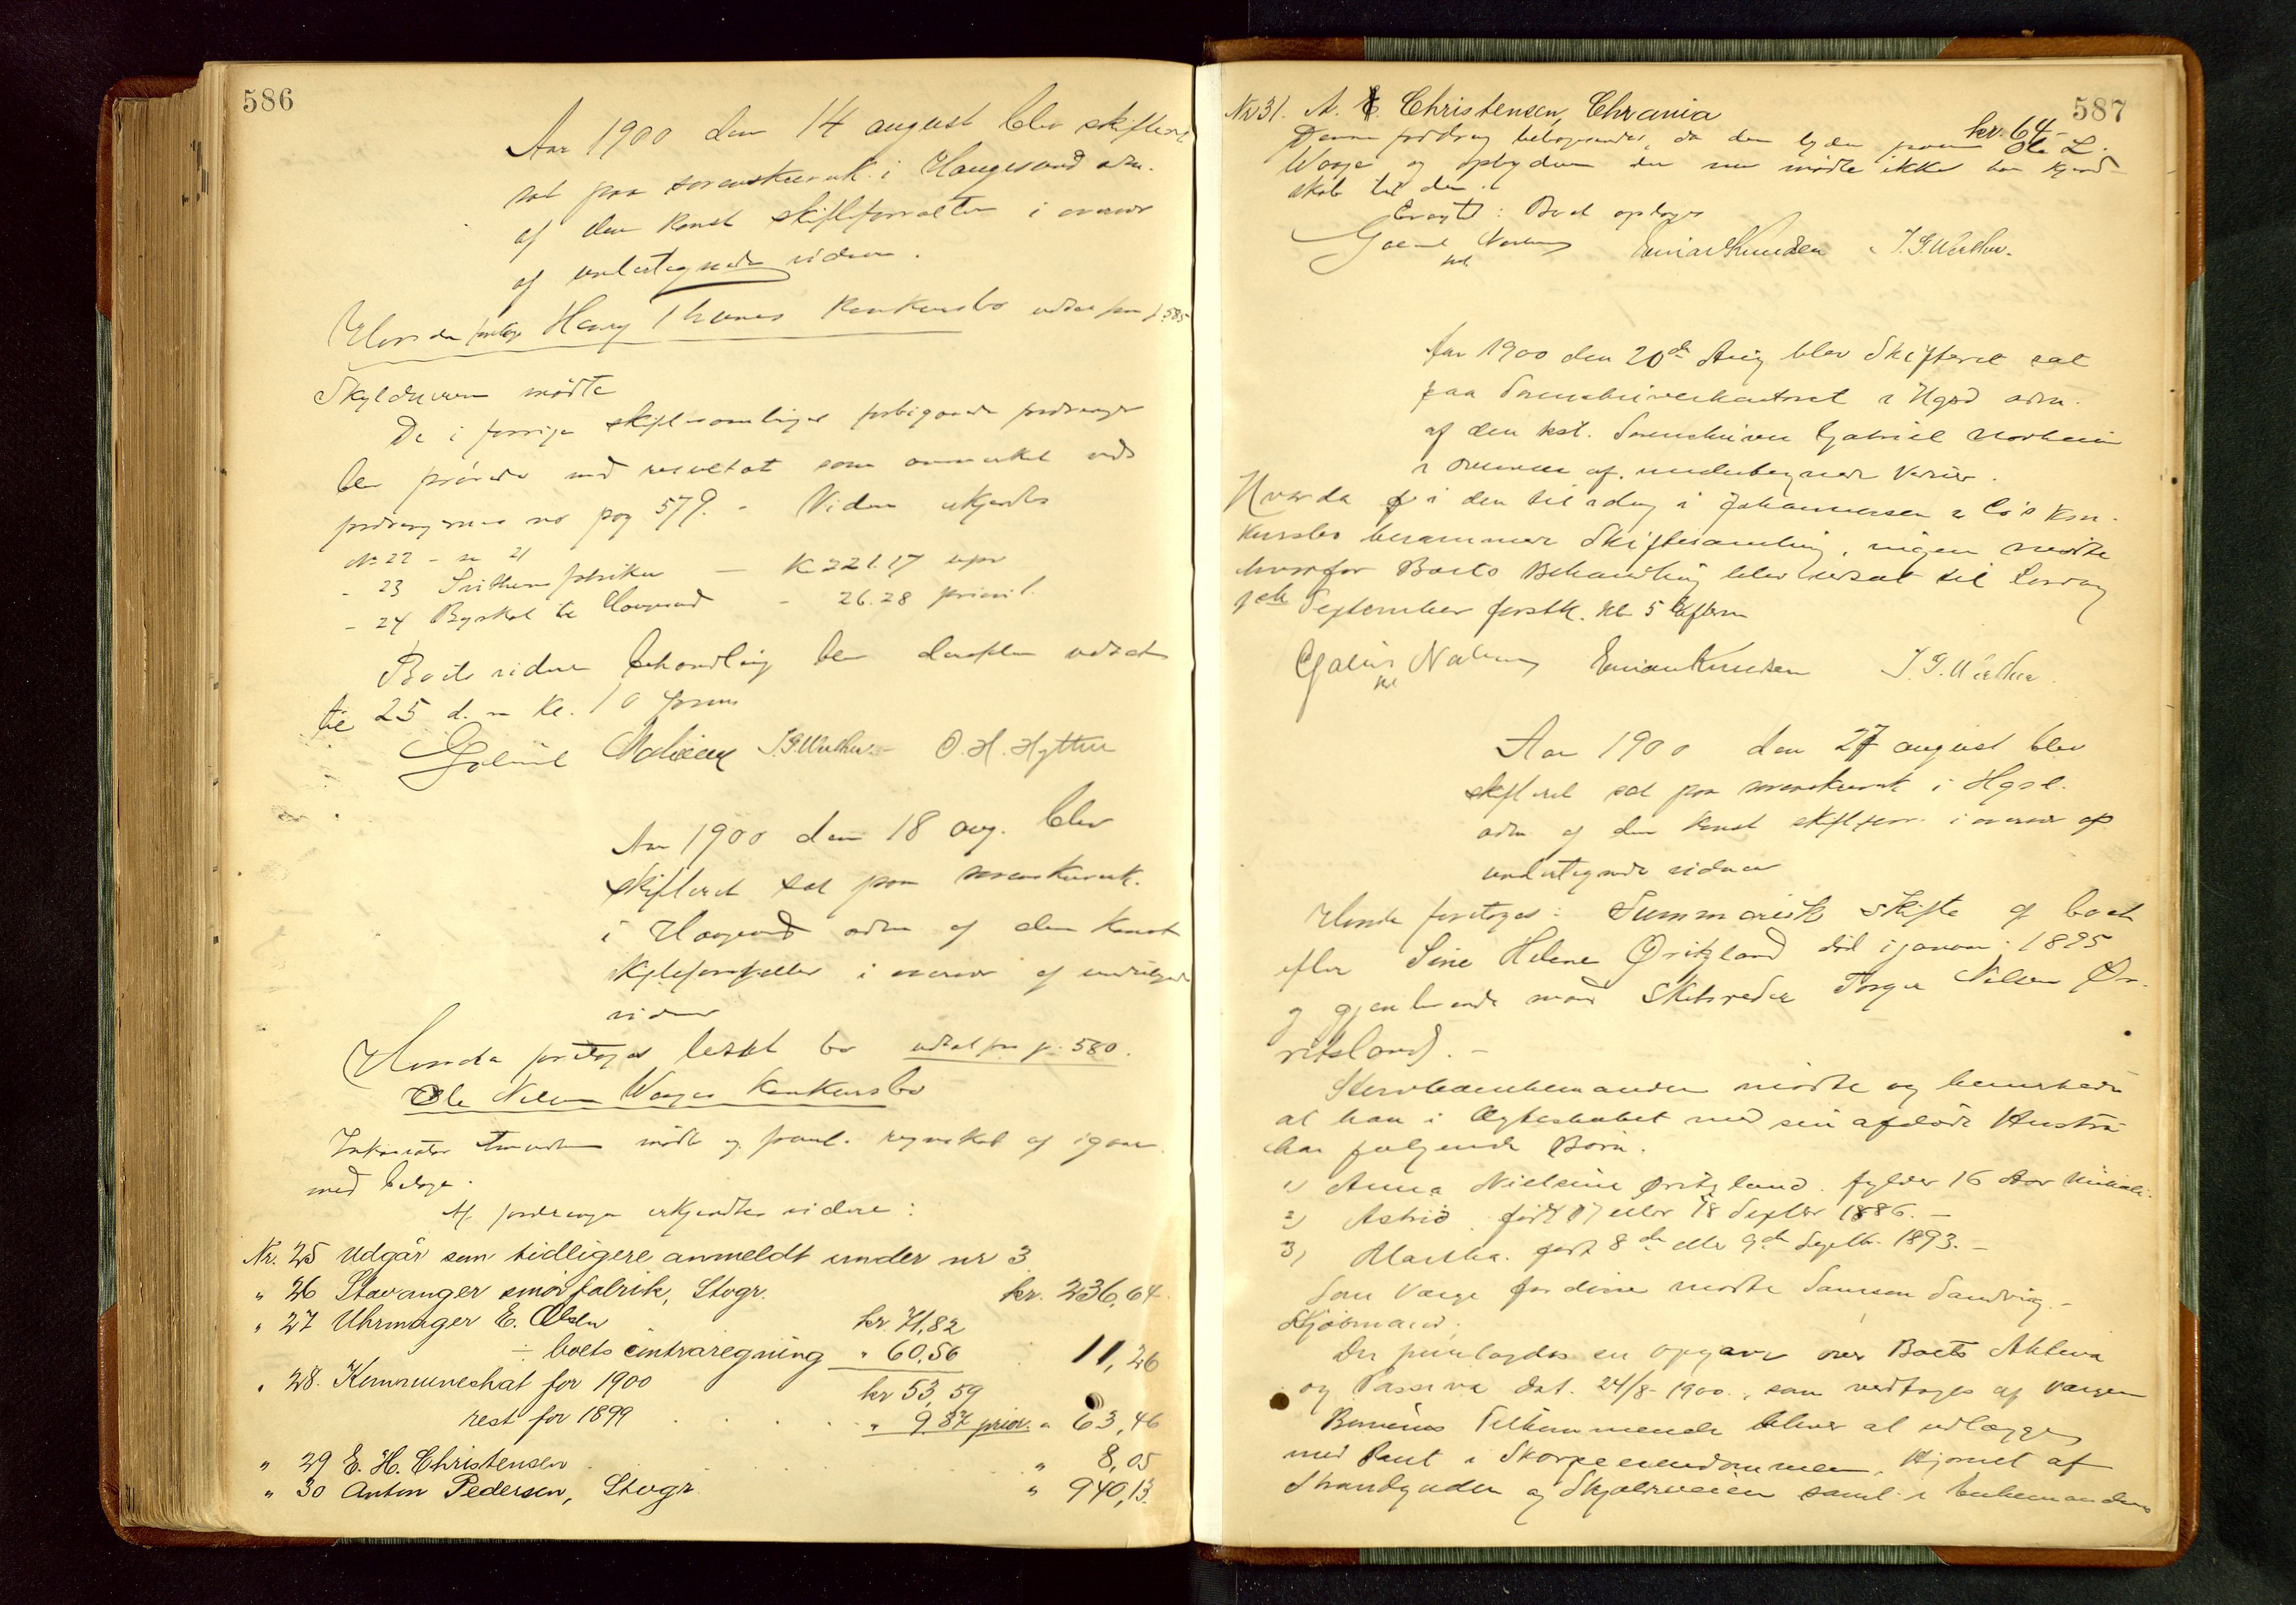 586
Aar 1900 den 14 august blev skifteret
sat paa sorenskriverk. i Haugesund adm.
af den konst skifteforvalter i overvær
af undertegnede vidner.
Hvorda foretoges Harry Thunes konkursbo udsat fra p. 585
Skyldneren mødte
De i forrige skiftesamlinger forbigaaede fordringer
blev prøvede med resultat som anmerket ved
fordringernes no pag 579. - Videre erkjendtes
No 22 - se 21
- 23 fabriker - K 221.17 upr
- 24 Byskat til Haugesund - 26.28 privil.
Boets videre behandling blev derefter udsat
til 25 d. m kl. 10 form
Gabriel J. G. Wather O. H. Hytten
Aar 1900 den 18 aug. blev
skifteret sat paa sorenskriverk.
i Haugesund adm af den konst
skifteforvalter i overvær af undertegnede
vidner
Hvorda foretoges udsat fra p. 580.
Ole Nilsen Waages konkursbo
Inkassator Amundsen mødte og freml. regnskab af igaar
med bilage.
Af fordringer erkjendtes videre:
Nr. 25 udgår som tidligere anmeldt under nr 3.
" 26 Stavanger smørfabrik, Stvgr. kr. 236,64.
" 27 Uhrmager E. Olsen kr. 71,82
÷ boets contraregning " 60,56 11,26
" 28. Kommuneskat for 1900 kr 53,59
rest for 1899 " 9 87 prior. " 63,46
" 29 E. H. Christensen " 8,05
" 30 Anton Pedersen, Stvgr. " 940,13.
587
Nr 31. N. C. Christensen, Chrania kr. 64-
Denne fordring da den lyder paa Ole L.
Waage og opbyderen der nu mødte ikke har kjend-
skab til den.
Eragtet: Boet optages
Gabriel Einar Knudsen J. G. Wather.
kst
Aar 1900 den 20de Aug blev Skifteret sat
paa Sorenskriverkontoret i Hgsd adm.
af den kst. Sorenskriver Gabriel Norheim
i overvær af undertegnede Vidner.
Hvorda i den til idag i Johannessen & Co's Kon-
kursbo berammede Skiftesamling, ingen mødte
hvorfor Boets Behandling blev udsat til Lørdag
September førstk. kl 5 Efterm
Gabriel Einar Knudsen J. G. Wather.
kst
Aar 1900 den 27 august blev
skifteret sat paa sorenskriverk i Hgsd.
adm af den konst skifteforv. i overvær af
undertegnede vidner
Hvorda foretoges: Summarisk skifte af boet
efter Sine Helene Øritsland død i januar 1895
og gjenlevende mand Skibsreder Torger Nilsen Ø-
ritsland. -
Stervboenkemanden mødte og bemerkede
at han i Ægteskabet med sin afdøde Hustru
har følgende Børn.
1) Anna Nielsine Øritsland. fylder 16 Aar
2) Astrid. født 17 eller 18 Septbr 1886. -
3) Martha. født 8de eller 9de Septbr. 1893. -
Som Værge for disse mødte Samson Sandvig. -
Kjøbmand.
Der fremlagdes en opgave over Boets Aktiva
og Passiva dat. 24/8- 1900., som vedtoges af værgen
Børnenes Tilkommende bliver at udlægges
med Pant i Skarpeeiendommen, Hjørnet af
Strandgaden og Skjoldeveien saml. i Enkemandens